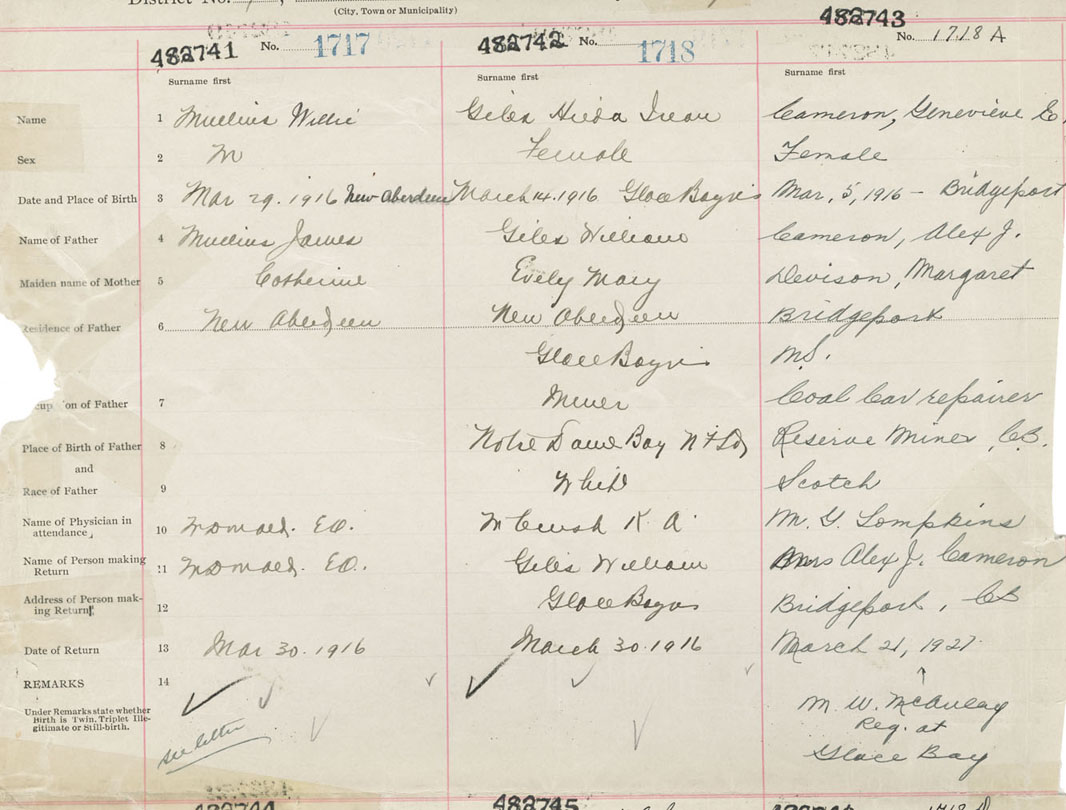 District No.
(City, Town or Municipality)
482741 No. 1717 482742 No. 1718 482743 No. 1718 A
Surname first Surname first Surname first
Name 1 Mullins Willie Giles Hilda Irean Cameron, Genevieve E.
Sex 2 M Female Female
Date and Place of Birth 3 Mar 29. 1916 New Aberdeen March 14. 1916 Glace Bay Mar, 5, 1916 - Bridgeport
Name of Father 4 Mullins James Giles William Cameron, Alex J.
Maiden name of Mother 5 Catherine Evely Mary Devison, Margaret
Residence of Father 6 New Aberdeen New Aberdeen Bridgeport
Glace Bay N.S.
of Father 7 Miner Coal Car repairer
Place of Birth of Father 8 Notre Dame Bay Nfld Reserve Mines, C.B.
and
Race of Father 9 White Scotch
Name of Physician in
attendance, 10 McDonald. E.O. K. A. M. G. Tompkins
Name of Person making
Return 11 McDonald. E.O. Giles William Mrs Alex J. Cameron
Address of Person mak-
ing Return 12 Glace Bay Bridgeport, CB
Date of Return 13 Mar 30. 1916 March 30. 1916 March 21, 1927
REMARKS 14
Under Remarks state whether
Birth is Twin, Triplet Ille-
gitimate or Still-birth.
see letter
M. W. McAulay
Reg. at
Glace Bay
482745